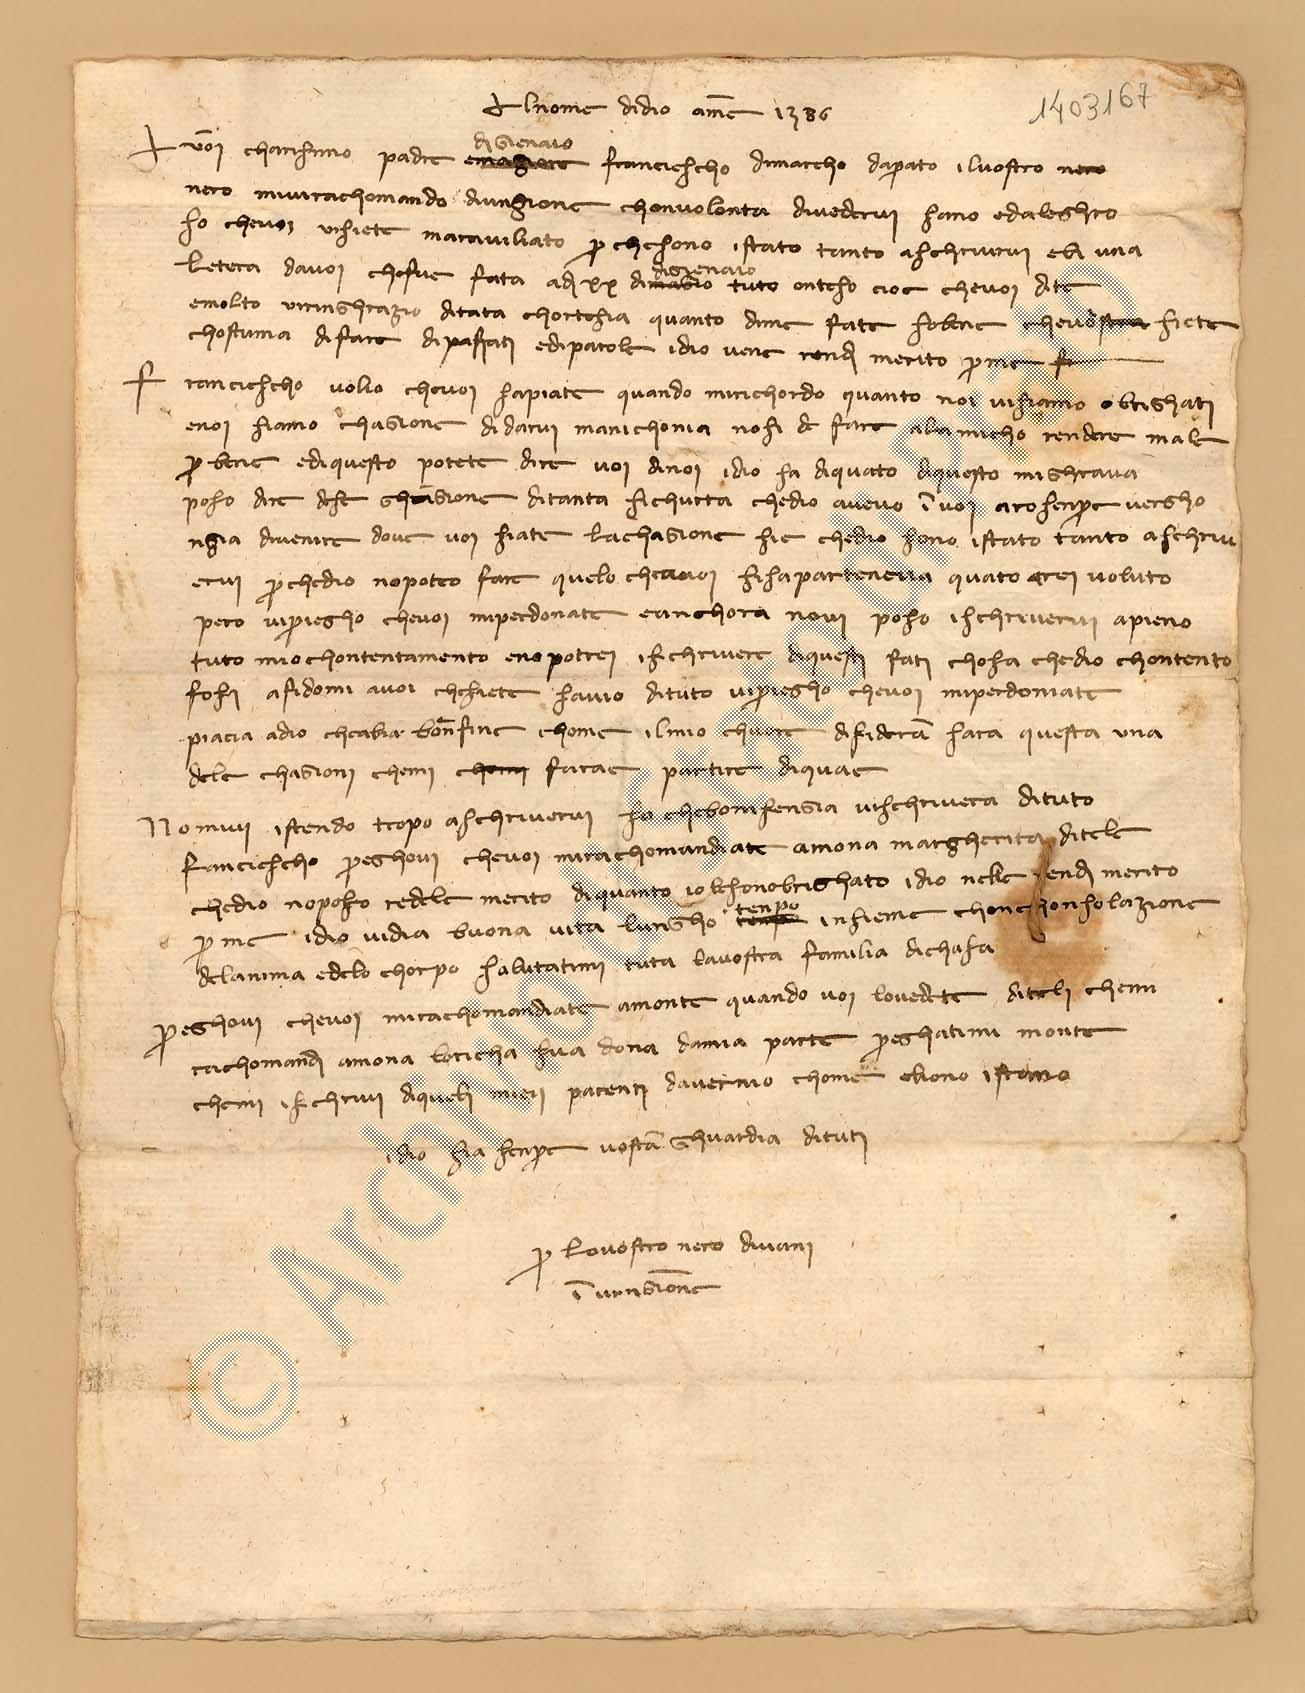 1403167
✝ lnome didio ame 1386
A voi charisimo padre emagiore franciescho dimarcho daprato ilvostro nero
di gienaio
nero mivirachomando divingione chonvolonta divedervi sano edaleghro
so chevoi visiete maraviliato p chesono istato tanto aschrivervi ebi una
letera davoi chefue fata adi xx dimagio tuto inteso cioe chevoi dite
digienaio
emolto viringhrazio ditata chortesia quanto dime fate sobene chevostra siete
chostuma difare dipassati ediparole idio vene rendi merito p me
Franciescho volio chevoi sapiate quando mirichordo quanto noi visiamo obrighati
enoi siamo chasione didarvi manichonia nosi de fare alamicho rendere male
p bene ediquesto potete dire voi dinoi idio sa diquato diquesto mighrava
poso dire dese ghasione ditanta sichurta chedio avevo i voi aro senpre vergho
ngia divenire dove voi siate lachasione sie chedio sono istato tanto aschriv
ervi p chedio nopoteo fare quelo cheavoi sisaparteneva quato arei voluto
pero vipriegho chevoi miperdonate eanchora novi poso ischrivervi apieno
tuto miochontentamento enopotrei ischrivere diquesti fati chosa chedio chontento
fosi afidomi avoi chesiete savio dituto vipriegho chevoi miperdoniate
piacia adio cheabia bonfine chome ilmio chuore disidera sara questa una
dele chasioni chemi chemi farae partire diquae
No mivi istendo tropo aschrivervi sa chebonisengia vischrivera dituto
franciescho preghovi chevoi mirachomandiate amona margherita ditele
chedio noposo redele merito diquanto iolesonobrighato idio nele rendi merito
p me idio vidia buona vita lungho tenpo insieme chone chonsolazione
tenpo
delanima edelo chorpo salutatimi tuta lavostra familia dichasa
preghovi chevoi mirachomandiate amonte quando voi lovedete diteli chemi
rachomandi amona loricha sua dona damia parte preghatimi monte
chemi ischrivi diqueli miei parenti davernio chome eliono istano
idio sia senpre vostra ghuardia dituti
p lovostro nero divani
i vingione